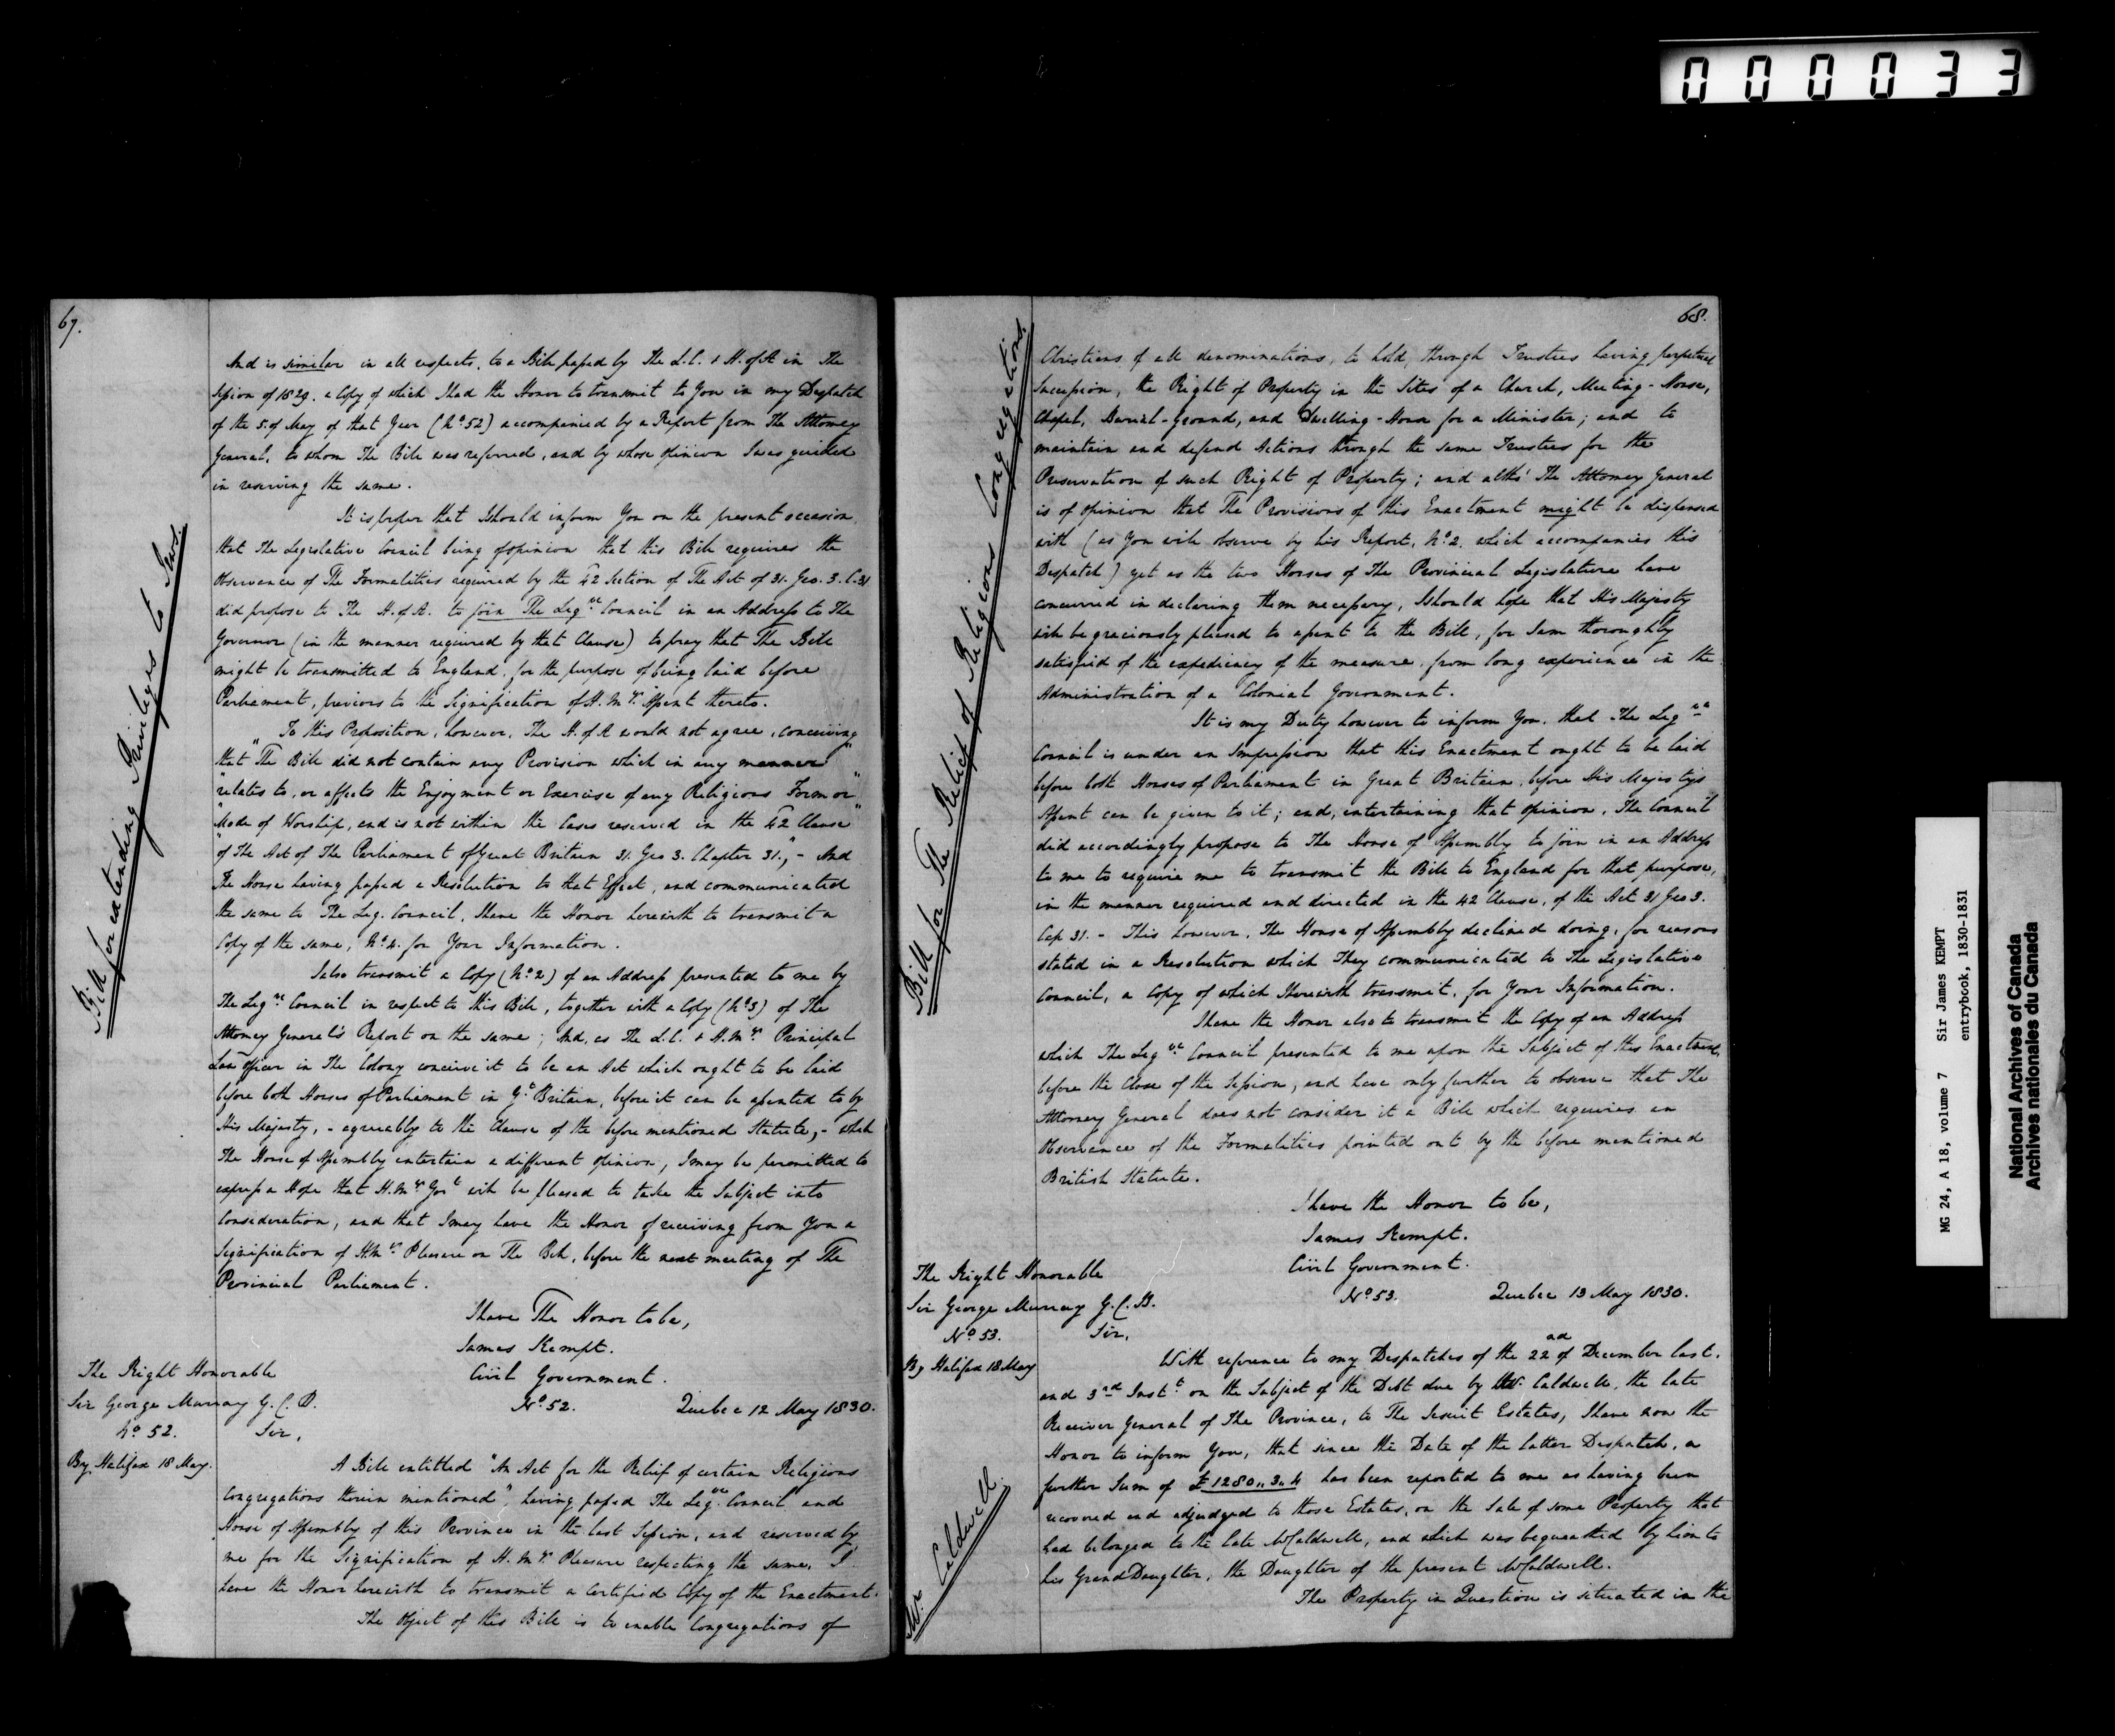 000033
67.
Bill for extending Privileges to Jews.
And is similar in all respects, to a Bill passed by The L.C. & H. of A in The
Session of 1829. a Copy of which I had the Honor to transmit to You in my Despatch
of the 5 of May of that Year (No 52) accompanied by a Report from The Attorney
General, to whom The Bill was referred, and by whose opinion I was guided
in reserving the same.
It is proper that I should inform You on the present occasion
that The Legislative Council being of opinion that this Bill requires the
Observance of The Formalities required by the 42 Section of The Act of 31. Geo. 3. C. 31
did propose to The H. of A. to join The Legve Council in an Address to The
Governor (in the manner required by that Clause) to pray that The Bill
might be transmitted to England, for the purpose of being laid before
Parliament, previous to the Signification of H. M ys Assent thereto.
To this Proposition, however, The H. of A would not agree, conceiving
that "The Bill did not contain any Provision which in any manner"
"relates to, or affects the Enjoyment or Exercise of any Religious Form or"
"Mode of Worship, and is not within the Cases reserved in the 42 Clause"
"of The Act of The Parliament of Great Britain 31. Geo 3. Chapter 31.", - And
The House having passed a Resolution to that Effect, and communicated
the same to The Leg. Council, I have the Honor herewith to transmit a
Copy of the same, No 4. for Your Information.
I also transmit a Copy (No 2) of an Address presented to me by
The Legve Council in respect to this Bill, together with a Copy (No 3) of The
Attorney General's Report on the same; And, as The L.C. & H. M ys Principal
Law Officer in The Colony conceive it to be an Act which ought to be laid
before both Houses of Parliament in Gt Britain, before it can be assented to by
His Majesty, - agreeably to the Clause of the before mentioned Statute, - whilst
The House of Assembly entertain a different opinion, I may be permitted to
express a Hope that H. M ys Govt will be pleased to take the Subject into
Consideration, and that I may have the Honor of receiving from You a
Signification of H. M ys Pleasure on The Bill, before the next meeting of The
Provincial Parliament.
I have The Honor to be,
James Kempt.
The Right Honorable
Sir George Murray G. C. B.
Civil Government.
No 52. Quebec 12 May 1830.
No 52.
By Halifax 18 May.
Sir,
A Bill entitled "An Act for the Relief of certain Religious
Congregations therein mentioned", having passed The Legve Council and
House of Assembly of this Province in the last Session, and reserved by
me for the Signification of H. M ys Pleasure respecting the same, I
have the Honor herewith to transmit a Certified Copy of the Enactment.
The Object of this Bill is to enable Congregations of
68.
Bill for The Relief of Religious Congregations.
Christians of all denominations, to hold, through Trustees having perpetual
Succession, the Right of Property in the Sites of a Church, Meeting-House,
Chapel, Burial-Ground, and Dwelling-House for a Minister; and to
maintain and defend Actions through the same Trustees for the
Preservation of such Right of Property; and altho' The Attorney General
is of opinion that The Provisions of this Enactment might be dispensed
with (as You will observe by his Report, No 2. which accompanies this
Despatch) yet as the two Houses of The Provincial Legislature have
concurred in declaring them necessary, I should hope that His Majesty
will be graciously pleased to assent to the Bill, for I am thoroughly
satisfied of the expediency of the measure, from long experience in the
Administration of a Colonial Government.
It is my Duty however to inform You, that The Legve
Council is under an Impression that this Enactment ought to be laid
before both Houses of Parliament in Great Britain, before His Majesty's
Assent can be given to it; and, entertaining that opinion, The Council
did accordingly propose to The House of Assembly to join in an Address
to me to require me to transmit the Bill to England for that purpose,
in the manner required and directed in the 42 Clause, of the Act 31 Geo 3.
Cap 31. - This however, The House of Assembly declined doing, for reasons
stated in a Resolution which They communicated to The Legislative
Council, a Copy of which I herewith transmit, for Your Information.
I have the Honor also to transmit the Copy of an Address
which The Legve Council presented to me upon the Subject of this Enactment,
before the Close of the Session, and have only further to observe that The
Attorney General does not consider it a Bill which requires an
Observance of the Formalities pointed out by the before mentioned
British Statute.
I have the Honor to be,
James Kempt.
The Right Honorable
Sir George Murray G. C. B.
Civil Government.
No 53. Quebec 13 May 1830.
No 53.
By Halifax 18 May
Sir,
Mr. Caldwell.
With reference to my Despatches of the 22nd of December last,
and 3rd Instt on the Subject of the Debt due by Mr. Caldwell, the late
Receiver General of The Province, to The Jesuit Estates, I have now the
Honor to inform You, that since the Date of the latter Despatch, a
further Sum of £1280,, 3,, 4 has been reported to me as having been
recovered and adjudged to those Estates, on the Sale of some Property that
had belonged to the late Mr Caldwell, and which was bequeathed by him to
his GrandDaughter, the Daughter of the present Mr Caldwell.
The Property in Question is situated in the
MG 24, A 18, volume 7 Sir James KEMPT
entrybook, 1830-1831
National Archives of Canada
Archives nationales du Canada